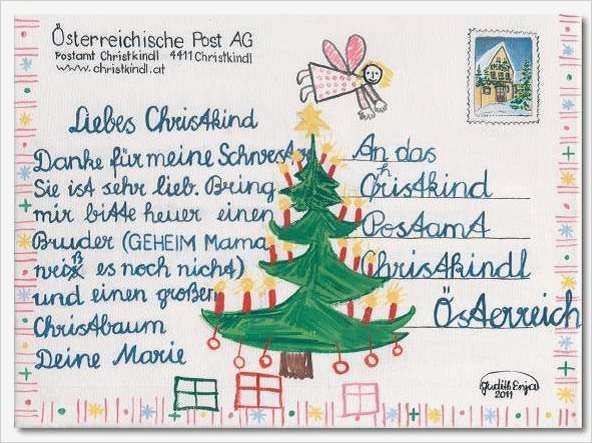 Österreichische Post AG
Postamt Christkindl 4411 Christkindl
www.christkindl.at
Liebes Christkind
Danke für meine Schwester
Sie ist sehr lieb. Bring
mir bitte heuer einen
Bruder (GEHEIM Mama
weiß es noch nicht)
und einen großen
Christbaum
Deine Marie
An das
Christkind
Postamt
Christkindl
Österreich
Judith Enja
2011